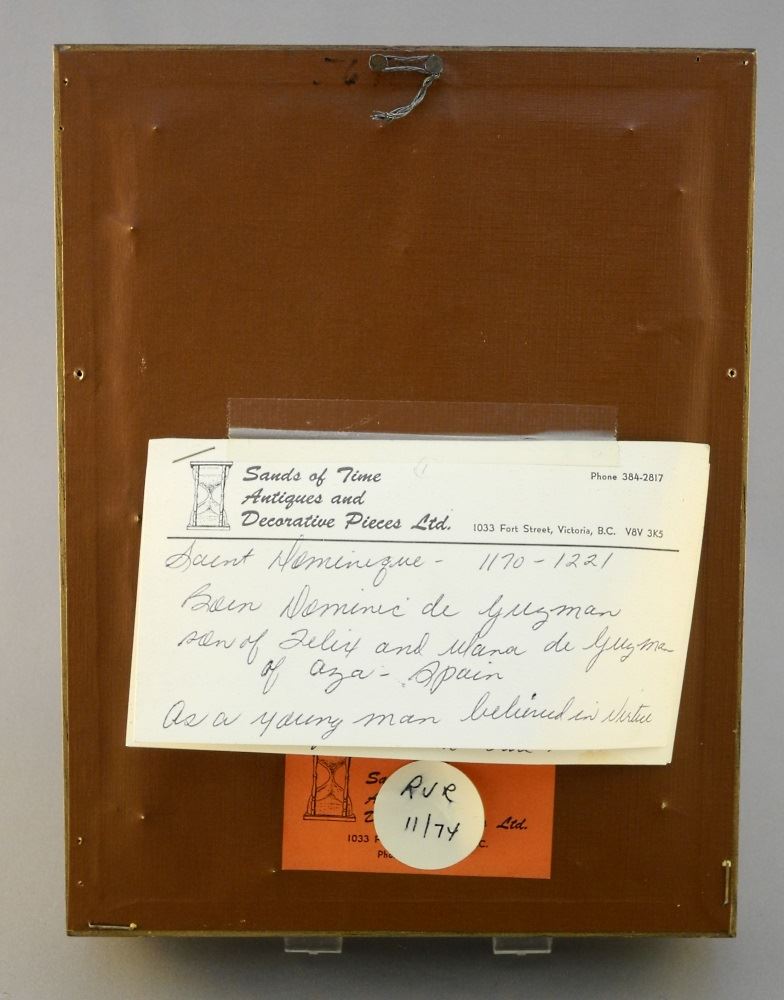 Sands of Time
Antiques and
Decorative Pieces Ltd.
Phone 384-2817
1033 Fort Street, Victoria, B.C. V8V 3K5
Saint Dominique - 1170-1221
Born Dominic de Guzman
son of Felix and Mana de Guzman
of Aza - Spain
As a young man believed in virtue
Ltd.
1033
C.
RVR
11/74